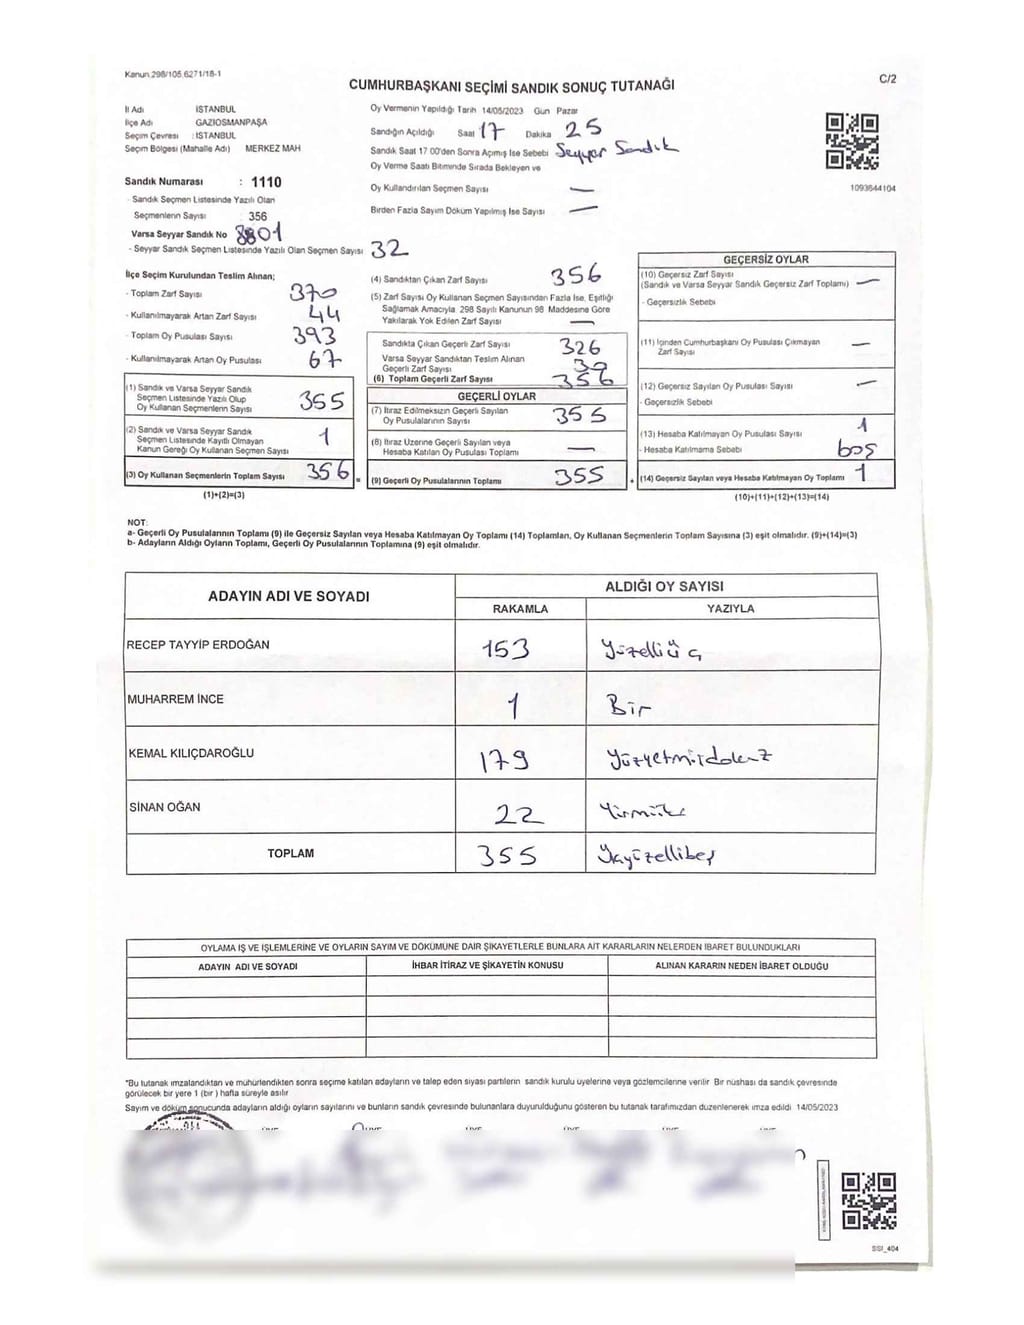 Kanun.298/105,6271/18-1
C/2
CUMHURBAŞKANI SEÇİMİ SANDIK SONUÇ TUTANAĞI
İl Adı İSTANBUL
İlçe Adı GAZİOSMANPAŞA
Seçim Çevresi : İSTANBUL
Seçim Bölgesi (Mahalle Adı) MERKEZ MAH
Sandık Numarası : 1110
- Sandık Seçmen Listesinde Yazılı Olan
Seçmenlerin Sayısı : 356
Varsa Seyyar Sandık No 8801
- Seyyar Sandık Seçmen Listesinde Yazılı Olan Seçmen Sayısı 32
Oy Vermenin Yapıldığı Tarih 14/05/2023 Gün Pazar
Sandığın Açıldığı Saat 17 Dakika 25
Sandık Saat 17 00'den Sonra Açımış İse Sebebi Seyyar Sandık
Oy Verme Saati Bitiminde Sırada Bekleyen ve
Oy Kullandırılan Seçmen Sayısı —
Birden Fazla Sayım Döküm Yapılmış İse Sayısı —
1093644104
İlçe Seçim Kurulundan Teslim Alınan;
- Toplam Zarf Sayısı 370
- Kullanılmayarak Artan Zarf Sayısı 44
- Toplam Oy Pusulası Sayısı 393
- Kullanılmayarak Artan Oy Pusulası 67
(1) Sandık ve Varsa Seyyar Sandık
Seçmen Listesinde Yazılı Olup
Oy Kullanan Seçmenlerin Sayısı 355
(2) Sandık ve Varsa Seyyar Sandık
Seçmen Listesinde Kayıtlı Olmayan
Kanun Gereği Oy Kullanan Seçmen Sayısı 1
(3) Oy Kullanan Seçmenlerin Toplam Sayısı 356 =
(1)+(2)=(3)
(4) Sandıktan Çıkan Zarf Sayısı 356
(5) Zarf Sayısı Oy Kullanan Seçmen Sayısından Fazla İse, Eşitliği
Sağlamak Amacıyla 298 Sayılı Kanunun 98 Maddesine Göre
Yakılarak Yok Edilen Zarf Sayısı —
Sandıkta Çıkan Geçerli Zarf Sayısı 326
Varsa Seyyar Sandıktan Teslim Alınan
Geçerli Zarf Sayısı 30
(6) Toplam Geçerli Zarf Sayısı 356
GEÇERLİ OYLAR
(7) İtiraz Edilmeksizin Geçerli Sayılan
Oy Pusulalarının Sayısı 355
(8) İtiraz Üzerine Geçerli Sayılan veya
Hesaba Katılan Oy Pusulası Toplamı —
(9) Geçerli Oy Pusulalarının Toplamı 355 +
GEÇERSİZ OYLAR
(10) Geçersiz Zarf Sayısı
(Sandık ve Varsa Seyyar Sandık Geçersiz Zarf Toplamı) —
- Geçersizlik Sebebi
(11) İçinden Cumhurbaşkanı Oy Pusulası Çıkmayan
Zarf Sayısı —
(12) Geçersiz Sayılan Oy Pusulası Sayısı —
- Geçersizlik Sebebi
(13) Hesaba Katılmayan Oy Pusulası Sayısı 1
- Hesaba Katılmama Sebebi boş
(14) Geçersiz Sayılan veya Hesaba Katılmayan Oy Toplamı 1
(10)+(11)+(12)+(13)=(14)
NOT:
a- Geçerli Oy Pusulalarının Toplamı (9) ile Geçersiz Sayılan veya Hesaba Katılmayan Oy Toplamı (14) Toplamları, Oy Kullanan Seçmenlerin Toplam Sayısına (3) eşit olmalıdır. (9)+(14)=(3)
b- Adayların Aldığı Oyların Toplamı, Geçerli Oy Pusulalarının Toplamına (9) eşit olmalıdır.
ADAYIN ADI VE SOYADI ALDIĞI OY SAYISI
RAKAMLA YAZIYLA
RECEP TAYYİP ERDOĞAN 153 Yüzelliüç
MUHARREM İNCE 1 Bir
KEMAL KILIÇDAROĞLU 179 Yüzyetmişdokuz
SİNAN OĞAN 22 Yirmiiki
TOPLAM 355 Üçyüzellibeş
OYLAMA İŞ VE İŞLEMLERİNE VE OYLARIN SAYIM VE DÖKÜMÜNE DAİR ŞİKAYETLERLE BUNLARA AİT KARARLARIN NELERDEN İBARET BULUNDUKLARI
ADAYIN ADI VE SOYADI İHBAR İTİRAZ VE ŞİKAYETİN KONUSU ALINAN KARARIN NEDEN İBARET OLDUĞU
*Bu tutanak imzalandıktan ve mühürlendikten sonra seçime katılan adayların ve talep eden siyasi partilerin sandık kurulu üyelerine veya gözlemcilerine verilir Bir nüshası da sandık çevresinde
görülecek bir yere 1 (bir ) hafta süreyle asılır
Sayım ve döküm sonucunda adayların aldığı oyların sayılarını ve bunların sandık çevresinde bulunanlara duyurulduğunu gösteren bu tutanak tarafımızdan düzenlenerek imza edildi 14/05/2023
SSI_404